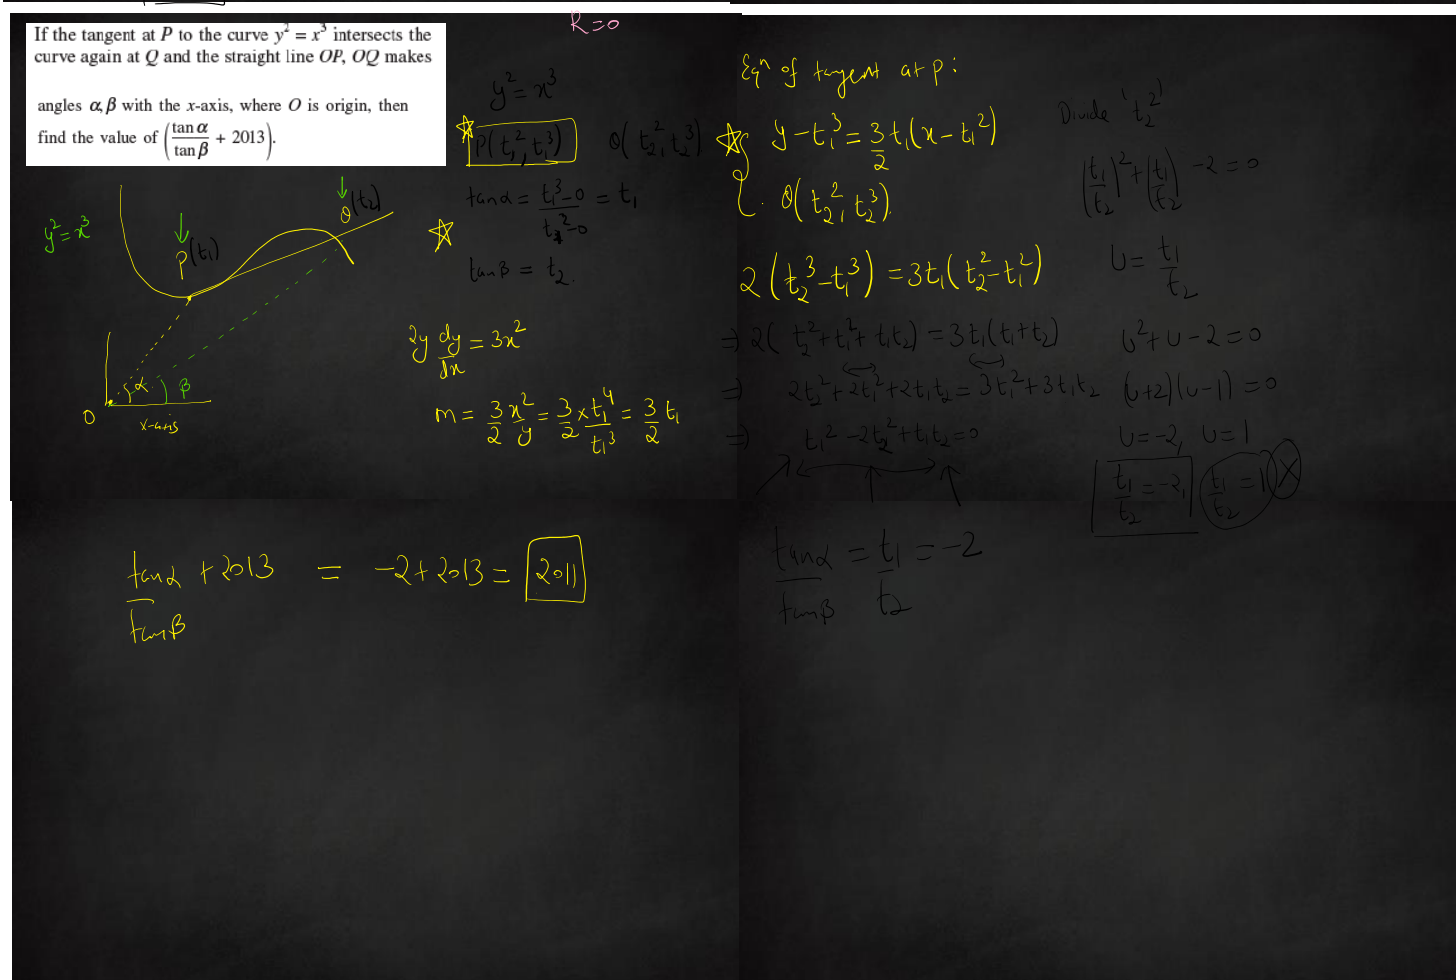 R=0
If the tangent at P to the curve y² = x³ intersects the
curve again at Q and the straight line OP, OQ makes
angles α, β with the x-axis, where O is origin, then
find the value of (tan α / tan β + 2013).
y² = x³
P(t₁)
Q(t₂)
α
β
O
x-axis
y² = x³
P(t₁², t₁³) Q(t₂², t₂³)
tanα = (t₁³-0)/(t₁²-0) = t₁
tanβ = t₂.
2y dy/dx = 3x²
m = 3/2 x²/y = 3/2 × t₁⁴/t₁³ = 3/2 t₁
Eqⁿ of tangent at P:
y - t₁³ = 3/2 t₁(x - t₁²)
Q(t₂², t₂³).
2(t₂³ - t₁³) = 3t₁(t₂² - t₁²)
⇒ 2(t₂² + t₁² + t₁t₂) = 3t₁(t₁+t₂)
⇒ 2t₂² + 2t₁² + 2t₁t₂ = 3t₁² + 3t₁t₂
⇒ t₁² - 2t₂² + t₁t₂ = 0
Divide 't₂²'
(t₁/t₂)² + (t₁/t₂) - 2 = 0
U = t₁/t₂
U² + U - 2 = 0
(U+2)(U-1) = 0
U = -2, U = 1
t₁/t₂ = -2, t₁/t₂ = 1 X
tanα/tanβ + 2013 = -2 + 2013 = 2011
tanα/tanβ = t₁/t₂ = -2